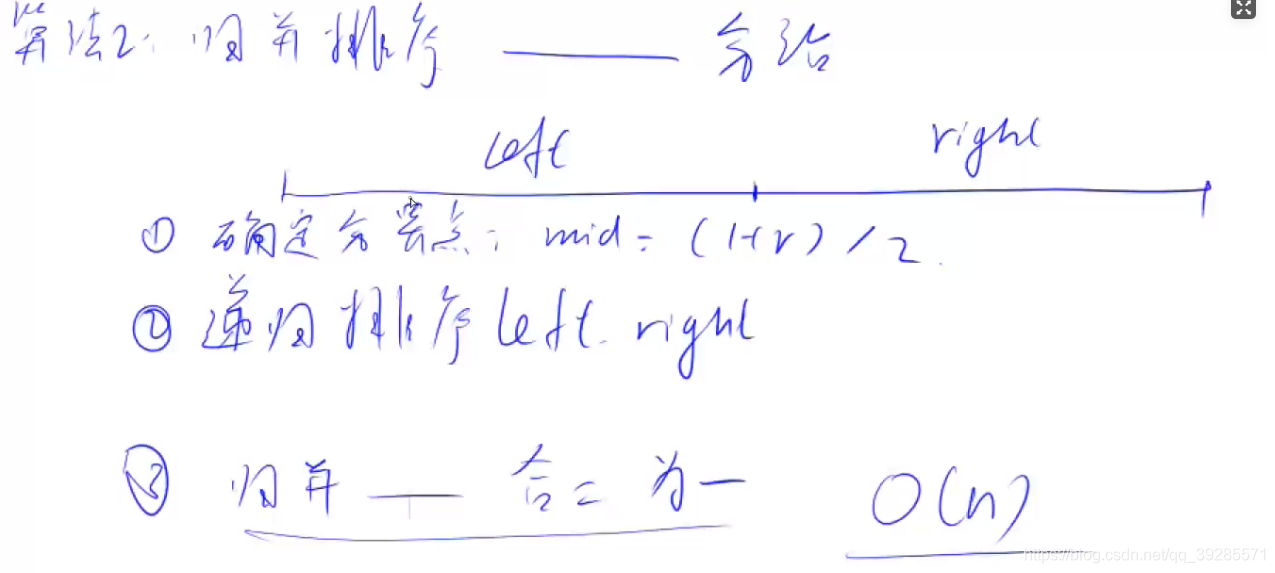 算法2: 归并排序 —— 分治
left right
① 确定分界点: mid = (l+r)/2
② 递归排序 left. right
③ 归并 —— 合二为一 O(n)
https://blog.csdn.net/qq_39285571